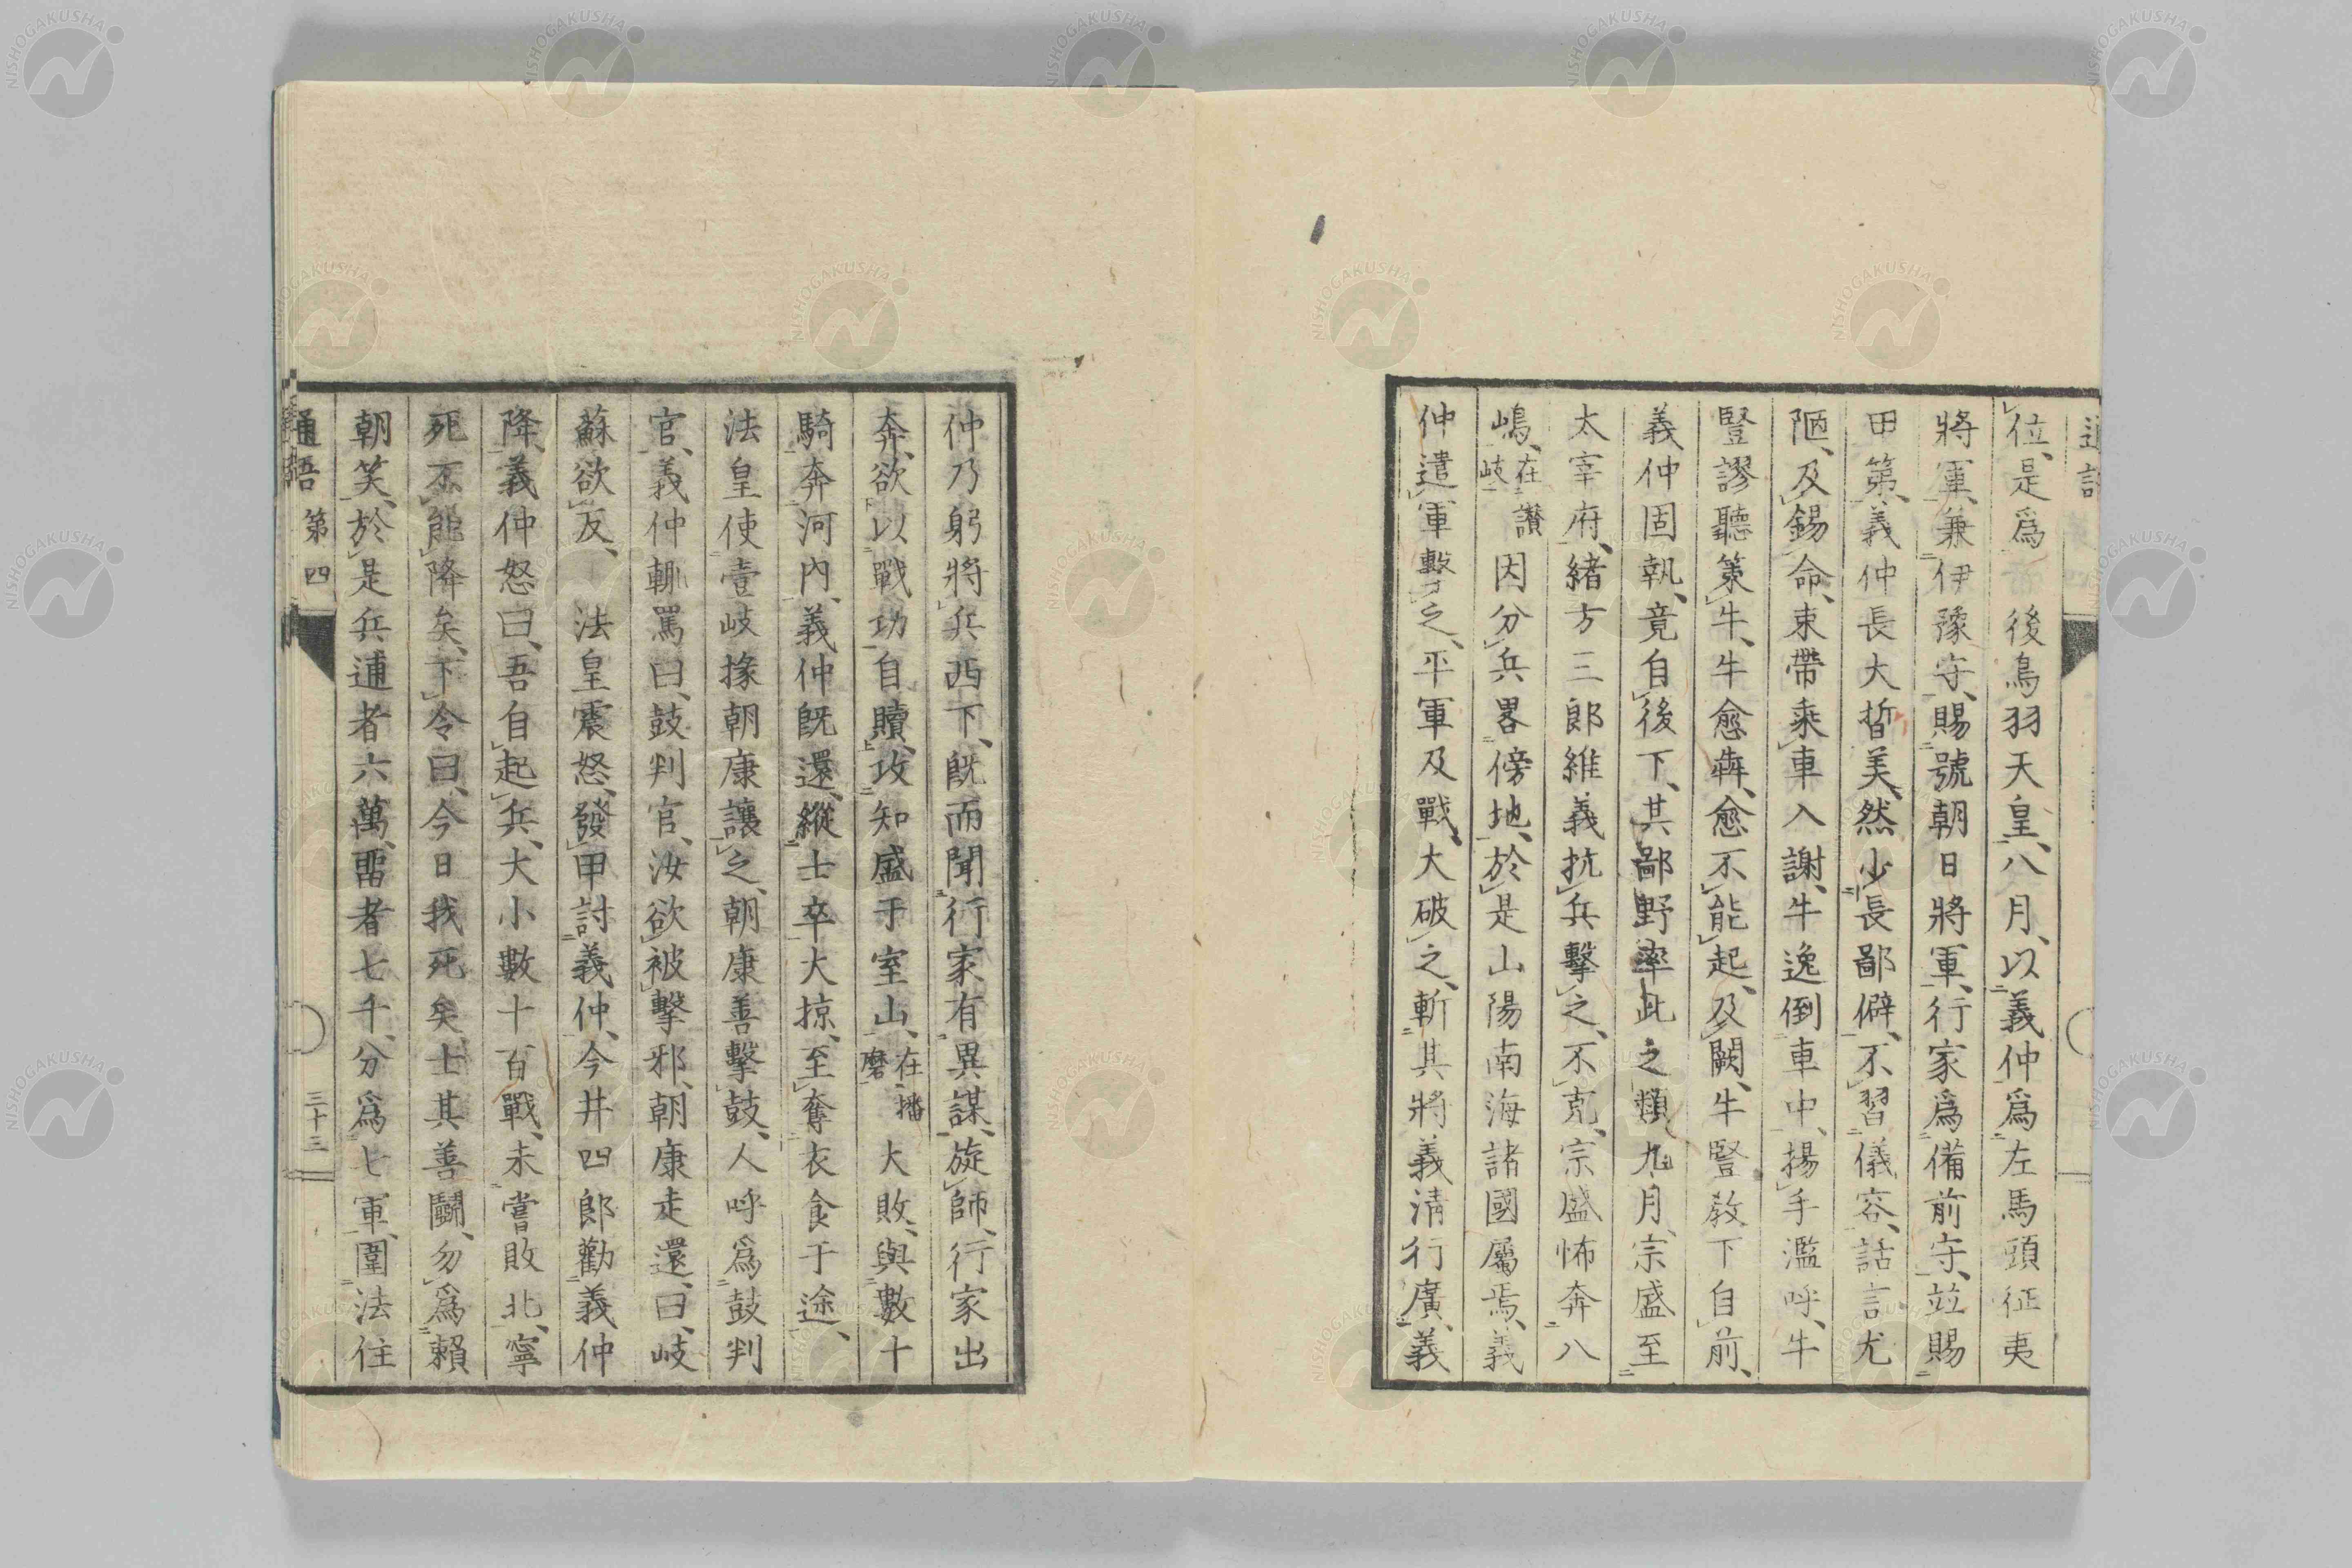 位、是爲　後鳥羽天皇、八月、以義仲爲左馬頭征夷
將軍、兼伊豫守、賜號朝日將軍、行家爲備前守、竝賜
田第、義仲長大晳美、然少長鄙僻、不習儀容、話言尤
陋、及錫命、束帶乘車入謝、牛逸倒車中、揚手濫呼、牛
豎謬聽策牛、牛愈犇、愈不能起、及闕、牛豎敎下自前、
義仲固執、竟自後下、其鄙野率此之類、九月、宗盛至
太宰府、緖方三郎維義抗兵擊之、不克、宗盛怖奔八
嶋、在讃岐因分兵畧傍地、於是山陽南海諸國屬焉、義
仲遣軍擊之、平軍及戰、大破之、斬其將義淸行廣、義
仲乃躬將兵西下、旣而聞行家有異謀、旋師、行家出
奔、欲以戰功自贖、攻知盛于室山、在播磨大敗、與數十
騎奔河內、義仲旣還、縱士卒大掠、至奪衣食于途、
法皇使壹岐掾朝康讓之、朝康善擊鼓、人呼爲鼓判
官、義仲輒罵曰、鼓判官、汝欲被擊邪、朝康走還、曰、岐
蘇欲反、　法皇震怒、發甲討義仲、今井四郎勸義仲
降、義仲怒曰、吾自起兵、大小數十百戰、未嘗敗北、寧
死不能降矣、下令曰、今日我死矣、士其善鬭、勿爲賴
朝笑、於是兵逋者六萬、畱者七千、分爲七軍、圍法住
通語　第四
三十三